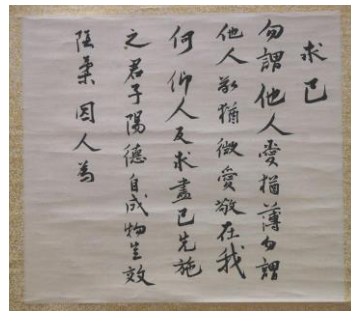 求己
勿謂他人愛猶薄勿謂
他人敬猶微愛敬在我
何仰人反求盡己先施
之君子陽德自成物生效
陰柔因人為